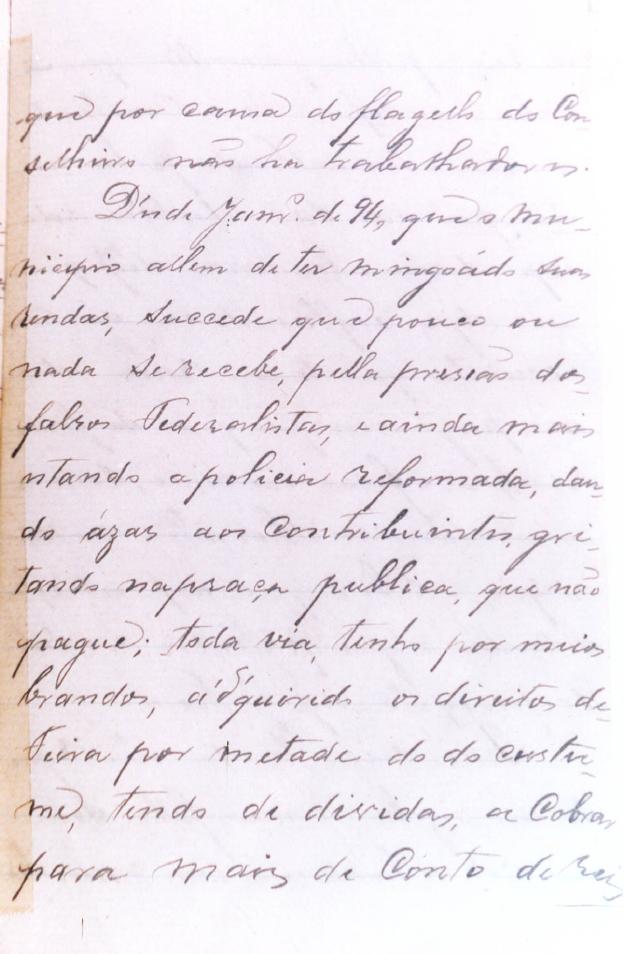 que por causa do flagello do Con-
selheiro não ha trabalhadores.
Dêsde Janrº. de 94, que o Mu-
nicipio allem de ter mingoádo suas
rendas, succede que pouco ou
nada se recebe, pella presião dos
falsos Federalistas, e ainda mais
estando a policia reformada, dan-
do ázas aos Contribuintes, gri-
tando na praça publica, que não
pague; toda via, tenho por meios
brandos, ádquirido os direitos de
Feira por metade do do custu-
me, tendo de dividas, a Cobrar
para mais de Conto de reis